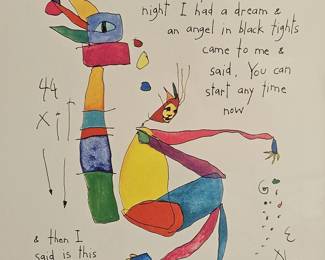 night I had a dream &
an angel in black tights
came to me &
said, You can
start any time
now
44
& then I
said is this